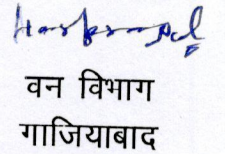 वन विभाग
गाजियाबाद